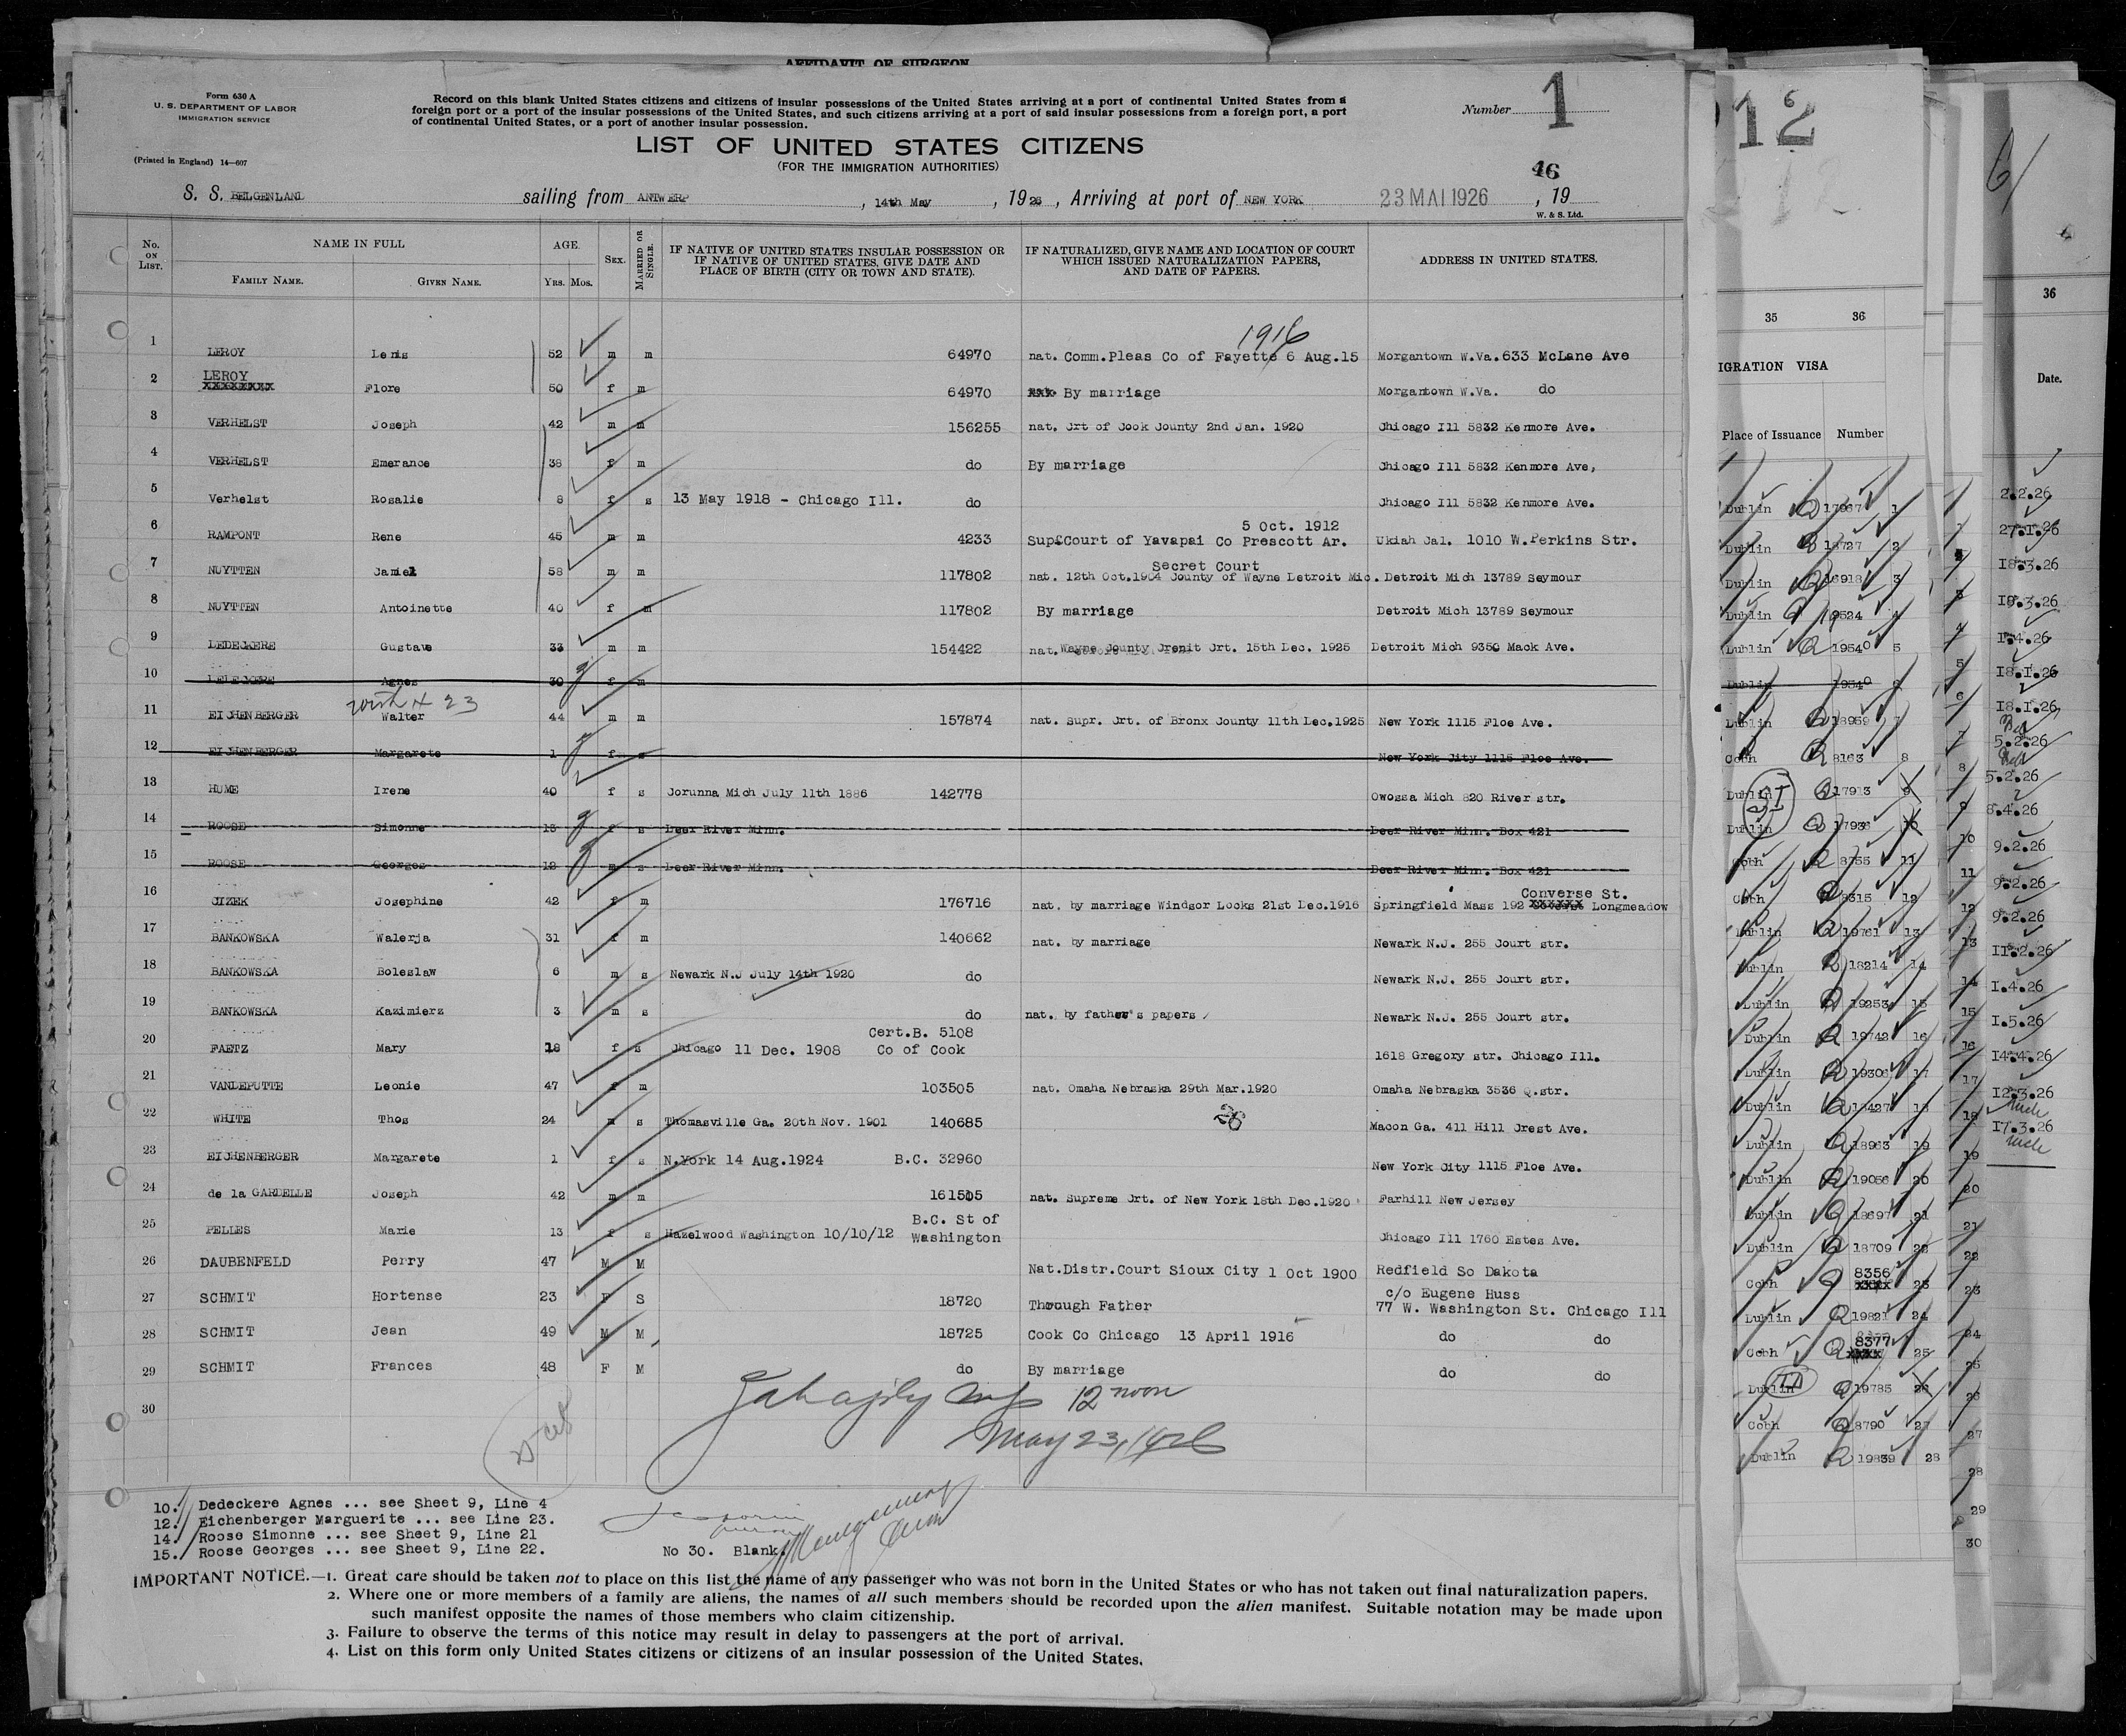 AFFIDAVIT OF SURGEON
Form 630 A
U. S. DEPARTMENT OF LABOR
IMMIGRATION SERVICE
(Printed in England) 14—607
Record on this blank United States citizens and citizens of insular possessions of the United States arriving at a port of continental United States from a
foreign port or a port of the insular possessions of the United States, and such citizens arriving at a port of said insular possessions from a foreign port, a port
of continental United States, or a port of another insular possession.
Number 1
LIST OF UNITED STATES CITIZENS
(FOR THE IMMIGRATION AUTHORITIES)
46
S. S. BELGENLAND sailing from ANTWERP, 14th May, 1926, Arriving at port of NEW YORK 23 MAI 1926, 19
W. & S. Ltd.
No. ON LIST. NAME IN FULL AGE. SEX. MARRIED OR SINGLE. IF NATIVE OF UNITED STATES INSULAR POSSESSION OR IF NATIVE OF UNITED STATES, GIVE DATE AND PLACE OF BIRTH (CITY OR TOWN AND STATE). IF NATURALIZED, GIVE NAME AND LOCATION OF COURT WHICH ISSUED NATURALIZATION PAPERS, AND DATE OF PAPERS. ADDRESS IN UNITED STATES.
FAMILY NAME. GIVEN NAME. YRS. MOS.
1916
1 LEROY 52 m m 64970 nat. Comm.Pleas Co of Fayette 6 Aug.15 Morgantown W.Va.633 McLane Ave
LEROY
2 XXXXXXXX Flore 50 f m 64970 XXX By marriage Morgantown W.Va. do
3 VERHELST Joseph 42 m m 156255 nat. Crt of Cook County 2nd Jan. 1920 Chicago Ill 5832 Kenmore Ave.
4 VERHELST Emerance 38 f m do By marriage Chicago Ill 5832 Kenmore Ave,
5 Verhelst Rosalie 8 f s 13 May 1918 - Chicago Ill. do Chicago Ill 5832 Kenmore Ave.
5 Oct. 1912
6 RAMPONT Rene 45 m m 4233 Sup.Court of Yavapai Co Prescott Ar. Ukiah Cal. 1010 W.Perkins Str.
Secret Court
7 NUYTTEN Camiel 58 m m 117802 nat. 12th Oct.1904 County of Wayne Detroit Mic. Detroit Mich 13789 Seymour
8 NUYTTEN Antoinette 40 f m 117802 By marriage Detroit Mich 13789 Seymour
9 LEDECKERE Gustave 33 m m 154422 nat. Wayne County Crt. 15th Dec. 1925 Detroit Mich 9350 Mack Ave.
10 Agnes 30 f m
23
11 EICHENBERGER Walter 44 m m 157874 nat. Supr. Crt. of Bronx County 11th Dec.1925 New York 1115 Floe Ave.
12 EICHENBERGER Margarete 1 f s New York City 1115 Floe Ave.
13 HUME Irene 40 f s Corunna Mich July 11th 1886 142778 Owossa Mich 820 River str.
14 ROOSE Simonne f s Deer River Minn. Deer River Minn. Box 421
15 ROOSE Georges 12 m s Deer River Minn. Deer River Minn. Box 421
Converse St.
16 CIZEK Josephine 42 f m 176716 nat. by marriage Windsor Locks 21st Dec.1916 Springfield Mass 192 Longmeadow
17 BANKOWSKA Walerja 31 f m 140662 nat. by marriage Newark N.J. 255 Court str.
18 BANKOWSKA Boleslaw 6 m s Newark N.J July 14th 1920 do Newark N.J. 255 Court str.
19 BANKOWSKA Kazimierz 3 m s do nat. by father's papers Newark N.J. 255 Court str.
Cert.B. 5108
20 FAETZ Mary 18 f s Chicago 11 Dec. 1908 Co of Cook 1618 Gregory str. Chicago Ill.
21 VANDEPUTTE Leonie 47 f m 103505 nat. Omaha Nebraska 29th Mar.1920 Omaha Nebraska 3536 Q.str.
22 WHITE Thos 24 m s Thomasville Ga. 20th Nov. 1901 140685 Macon Ga. 411 Hill Crest Ave.
23 EICHENBERGER Margarete 1 f s N.York 14 Aug.1924 B.C. 32960 New York City 1115 Floe Ave.
24 de la GARDELLE Joseph 42 m m nat. Supreme Crt. of New York 18th Dec.1920 Farhill New Jersey
B.C. St of
25 PELLES Marie 13 f s Hazelwood Washington 10/10/12 Washington Chicago Ill 1760 Estes Ave.
26 DAUBENFELD Perry 47 M M Nat.Distr.Court Sioux City 1 Oct 1900 Redfield So Dakota
c/o Eugene Huss
27 SCHMIT Hortense 23 F S 18720 Through Father 77 W. Washington St. Chicago Ill
28 SCHMIT Jean 49 M M 18725 Cook Co Chicago 13 April 1916 do do
29 SCHMIT Frances 48 F M do By marriage do do
30
12 noon
May 23, 1926
10. Dedeckere Agnes ... see Sheet 9, Line 4
12. Eichenberger Marguerite ... see Line 23.
14. Roose Simonne ... see Sheet 9, Line 21
15. Roose Georges ... see Sheet 9, Line 22.
No 30. Blank.
IMPORTANT NOTICE.—1. Great care should be taken not to place on this list the name of any passenger who was not born in the United States or who has not taken out final naturalization papers.
2. Where one or more members of a family are aliens, the names of all such members should be recorded upon the alien manifest. Suitable notation may be made upon
such manifest opposite the names of those members who claim citizenship.
3. Failure to observe the terms of this notice may result in delay to passengers at the port of arrival.
4. List on this form only United States citizens or citizens of an insular possession of the United States.
12
35 36
IGRATION VISA
Place of Issuance Number
Dublin 17967 1
Dublin 18727 2
Dublin 18918 3
Dublin 19524 4
Dublin 19540 5
Dublin 19540 6
Dublin 18959 7
Cobh 8163 8
Dublin 17913 9
Dublin 17936 10
Cobh 8755 11
Cobh 8315 12
Dublin 19761 13
Dublin 18214 14
Dublin 19253 15
Dublin 19742 16
Dublin 19306 17
Dublin 18427 18
Dublin 18963 19
Dublin 19056 20
Dublin 18697 21
Dublin 18709 22
Cobh 8356 23
Dublin 19821 24
Cobh 8377 25
Dublin 19785 26
Cobh 8790 27
Dublin 19839 28
36
Date.
2.2.26
27.1.26
18.3.26
19.3.26
1.4.26
18.1.26
18.1.26
5.2.26
5.2.26
8.4.26
9.2.26
9.2.26
9.2.26
11.2.26
1.4.26
1.5.26
14.4.26
12.3.26
17.3.26